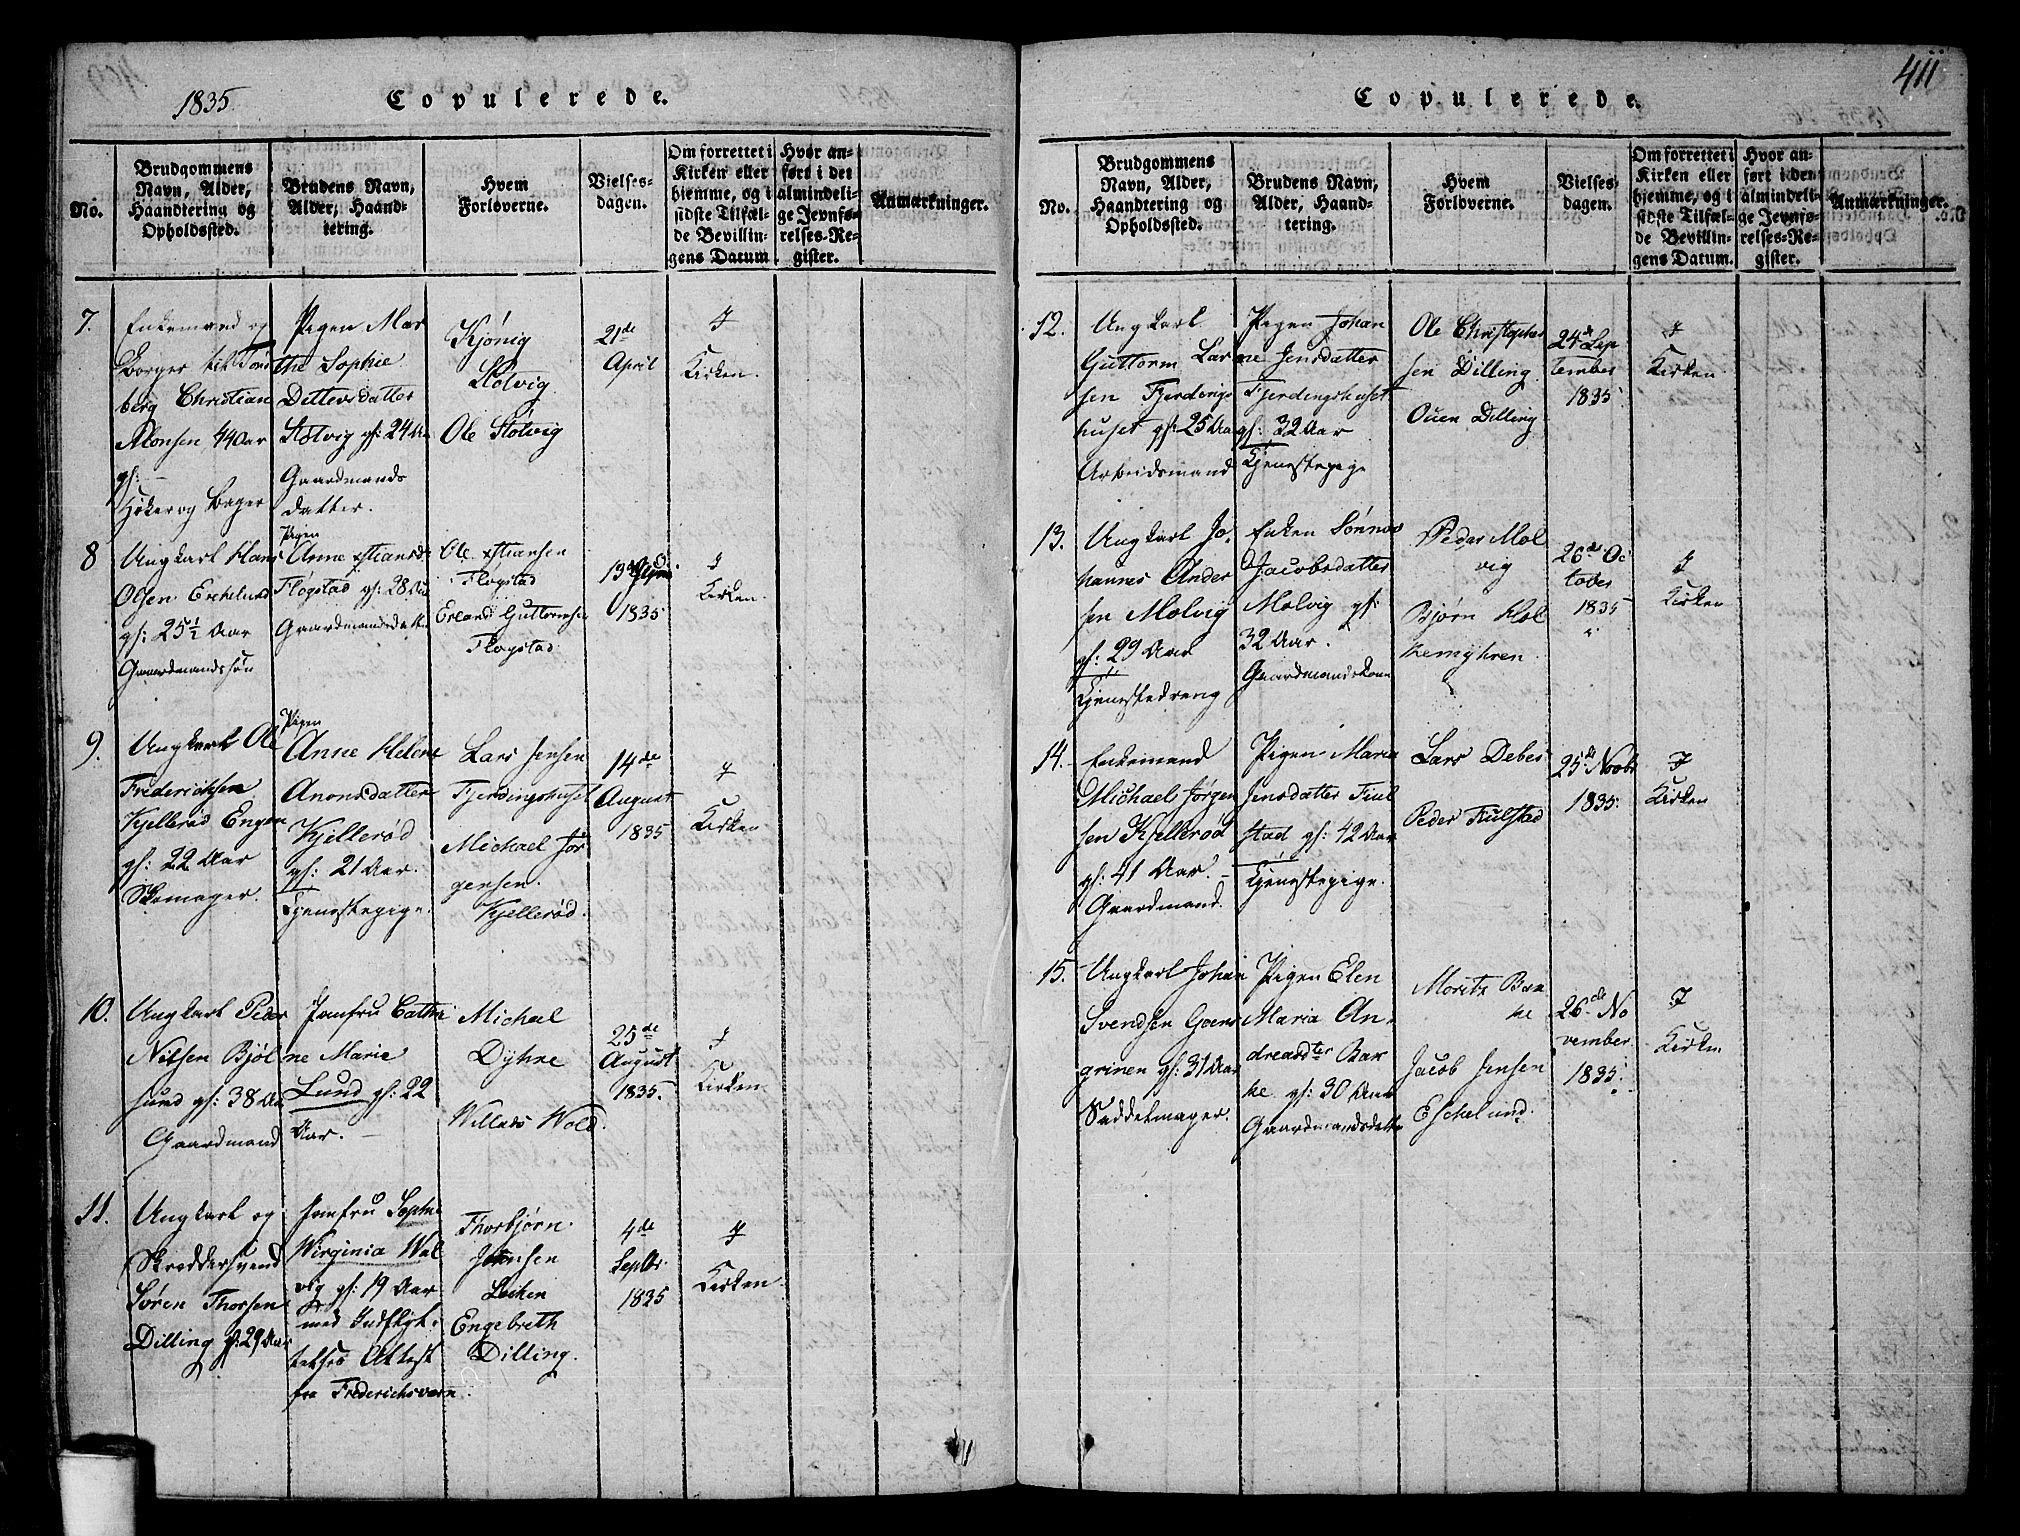 1835
Copulerede.
No.
Brudgommens
Navn, Alder,
Haandtering og
Opholdssted.
Brudens Navn,
Alder, Haand-
tering.
Hvem
Forloverne.
Vielses-
dagen.
Om forrettet i
Kirken eller
hjemme, og i
sidste Tilfæl-
de Bevillin-
gens Datum.
Hvor an-
ført i det
almindeli-
ge Jevnfø-
relses-Re-
gister.
Anmærkninger.
7.
Enkemand og
Borger til Tøns
berg Christian
Monsen 44 Aar
gl: –
Høker og Bager
Pigen Mar
the Sophie
Detlevsdatter
Stølvig gl: 24 Aar
Gaardmands
datter.
Kjønig
Stølvig
Ole Stølvig
21de
April
I
Kirken.
8
Ungkarl Hans
Olsen Eschelund
gl: 25½ Aar
Gaardmandssøn
Pigen
Anne Xstiansd:
Fløgstad gl: 28 Aar
Gaardmandsdatter
Ole Xstiansen
Fløgstad
Erland Guttormsen
Flogstad
1835
I
Kirken.
9.
Ungkarl Ole
Frederichsen
Kjellerød Engen
gl: 22 Aar
Skomager.
Pigen
Anne Helene
Anonsdatter
Kjellerød
gl: 21 Aar.
Tjenestepige.
Lars Jensen
Fjerdingshuset
Michael Jør
gensen.
Kjellerød.
14de
August
1835
I
Kirken
10.
Ungkarl Peder
Nilsen Bjøl
sund gl: 38 Aar
Gaardmand
Jomfru Cathri
ne Marie
Lund gl: 22
Aar. –
Michael
Dyhne
Willads Wold.
25de
August
1835.
I
Kirken
11.
Ungkarl og
Skreddersvend
Søren Thorsen
Dilling gl: 29 Aar
Jomfru Sophie
Wirginia Wal
vig gl: 19 Aar
med Indflyt-
telses Attest
fra Frederichsværn
Thorbjørn
Jensen
Engebreth
Dilling.
4de
Septbr.
1835
I
Kirken.
411
Copulerede.
No.
Brudgommens
Navn, Alder,
Haandtering og
Opholdssted.
Brudens Navn,
Alder, Haand-
tering.
Hvem
Forloverne.
Vielses-
dagen.
Om forrettet i
Kirken eller
hjemme, og i
sidste Tilfæl-
de Bevillin-
gens Datum.
Hvor an-
ført i den
almindeli-
ge Jevnfø-
relses-Re-
gister.
Anmærkninger.
12.
Ungkarl
Guttorm Lar
sen Fjerdings
huset gl: 25 Aar
Arbeidsmand
Pigen Johan
ne Jensdatter
Fjerdingshuset
gl: 32 Aar
Tjenestepige
Ole Christopher
sen Dilling
Ouen Dilling
24de Sep
tember
1835
I
Kirken
13.
Ungkarl Jo-
hannes Ander
sen Molvig
gl: 29 Aar
Tjenestedreng
Enken Sønnov
Jacobsdatter
Molvig gl:
32 Aar.
Gaardmandskone
Peder Mol
vig
Bjørn Hol
kemyhren
26de Oc
tober
1835
I
Kirken
14.
Enkemand
Michael Jørgen
sen Kjellerød
gl: 41 Aar. –
Gaardmand.
Pigen Maria
Jensdatter Fuul
stad gl: 42 Aar
Tjenestepige.
Lars Debes
Peder Fulstad
25de Novbr
1835.
I
Kirken
15.
Ungkarl Johan
Svendsen Goens
grinen gl: 31 Aar
Saddelmager.
Pigen Elen
Maria An-
dreasdter Bak
ke gl: 30 Aar
Gaardmandsdatter
Moritz Bak
ke
Jacob Jensen
Eschelund.
26de No
vember
1835.
I
Kirken